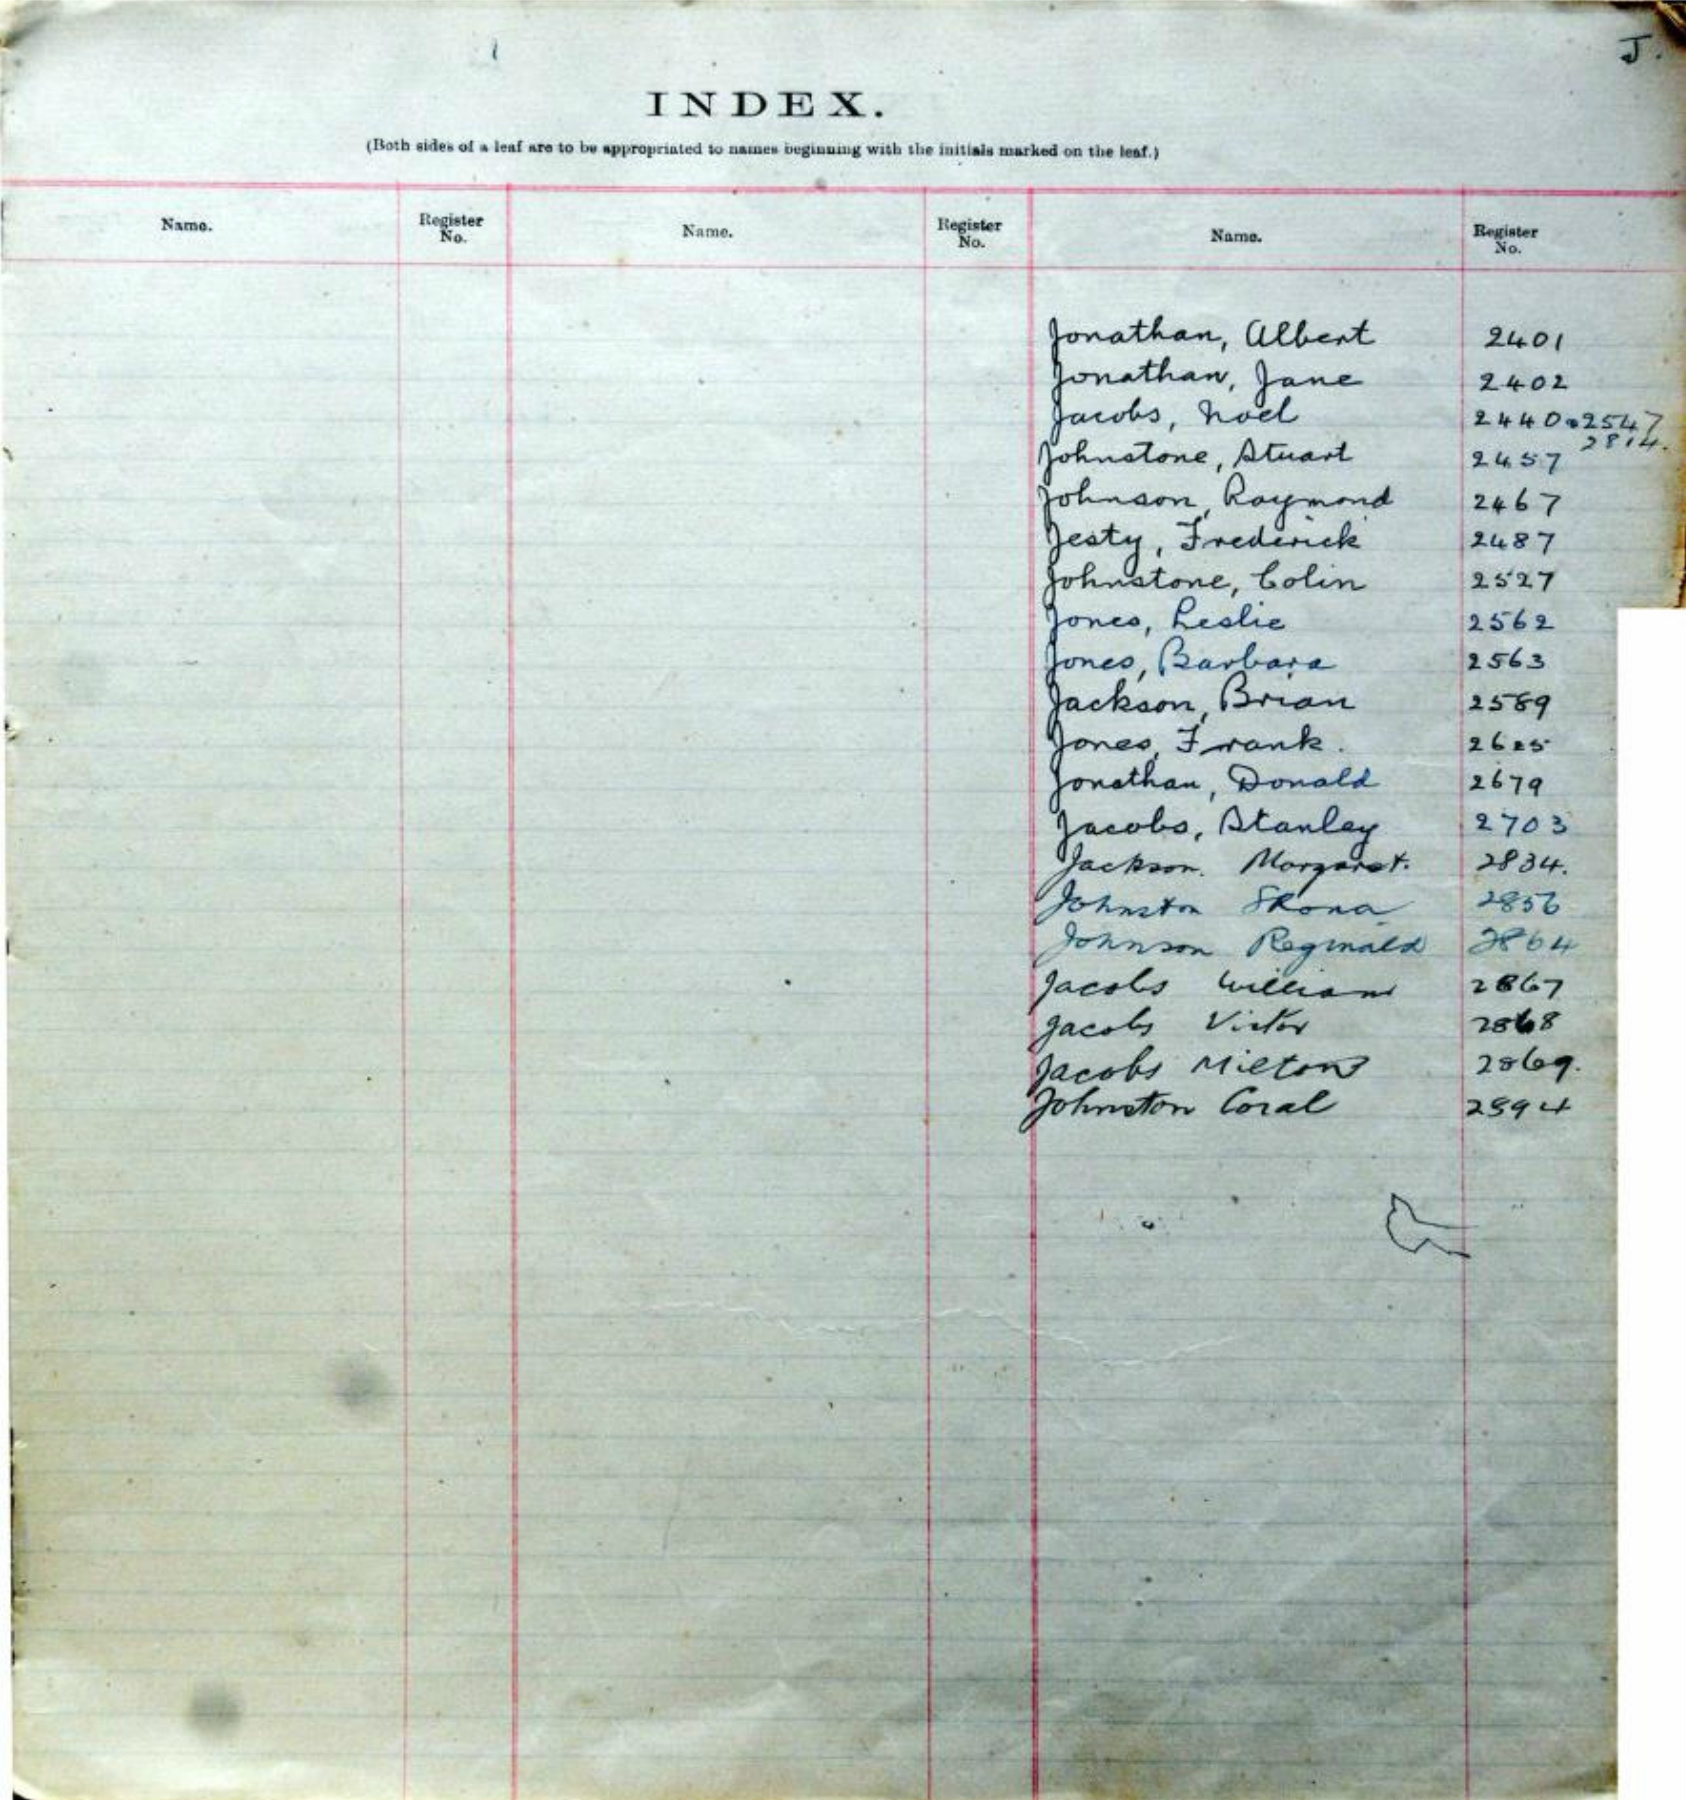 J.
INDEX.
(Both sides of a leaf are to be appropriated to names beginning with the initials marked on the leaf.)
Name. Register No. Name. Register No. Name. Register No.
Jonathan, Albert 2401
Jonathan, Jane 2402
Jacobs, Noel 2440 2547
2814.
Johnstone, Stuart 2457
Johnson, Raymond 2467
Jesty, Frederick 2487
Johnstone, Colin 2527
Jones, Leslie 2562
Jones, Barbara 2563
Jackson, Brian 2589
Jones, Frank. 2625
Jonathan, Donald 2679
Jacobs, Stanley 2703
Jackson. Margaret. 2834.
Johnston Shona 2856
Johnson Reginald 2864
Jacobs William 2867
Jacobs Victor 2868
Jacobs Milton 2869.
Johnston Coral 2894